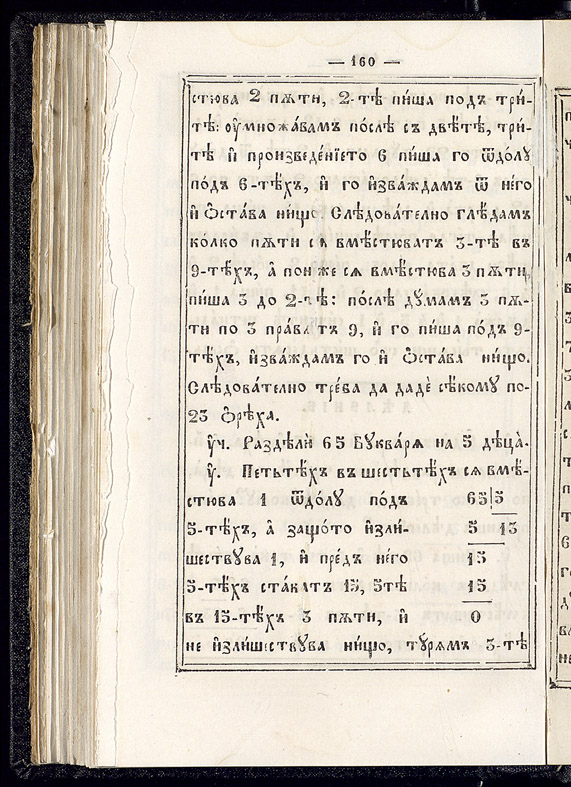 — 160 —
стюва 2 пѫти, 2-тѣ пи́ша подъ три́-
тѣ: оу҆множа́вамъ по́слѣ съ двѣ́тѣ, три́-
тѣ и҆ произведе́нїето 6 пи́ша го ѿдо́лу
по́дъ 6-тѣ́хъ, и҆ го и҆зва́ждамъ ѿ не́го
и҆ ѻ҆ста́ва ни́що. Слѣ́дователно глѣ́дамъ
ко́лко пѫ́ти сѧ вмѣ́стюватъ 3-тѣ въ
9-тѣ́хъ, а҆ пон же сѧ вмѣ́стюва 3 пѫти,
пи́ша 3 до 2-тѣ: по́слѣ ду́мамъ 3 пѫ-
ти по 3 пра́вѧтъ 9, и҆ го пи́ша по́дъ 9-
тѣ́хъ, и҆зва́ждамъ го и҆ ѻ҆ста́ва ни́що.
Слѣ́дователно тре́ба да дадѐ сѣ́кому по-
23 ѻ҆рѣ́ха.
оу҆ч. Разделѝ 65 Буква́рѧ на 5 дѣца̀.
оу҆. Петьтѣ́хъ въ шестьтѣ́хъ сѧ вмѣ́-
стюва 1 ѿдо́лу по́дъ 65|5
5-тѣ́хъ, а҆ защо́то и҆зли́- 5 13
шествува 1, и҆ пре́дъ не́го 15
5-тѣ́хъ ста́ватъ 15, 5тѣ 15
въ 15-тѣ́хъ 3 пѫти, и҆ 0
не и҆зли́шествува ни́що, ту́рѧмъ 3-тѣ